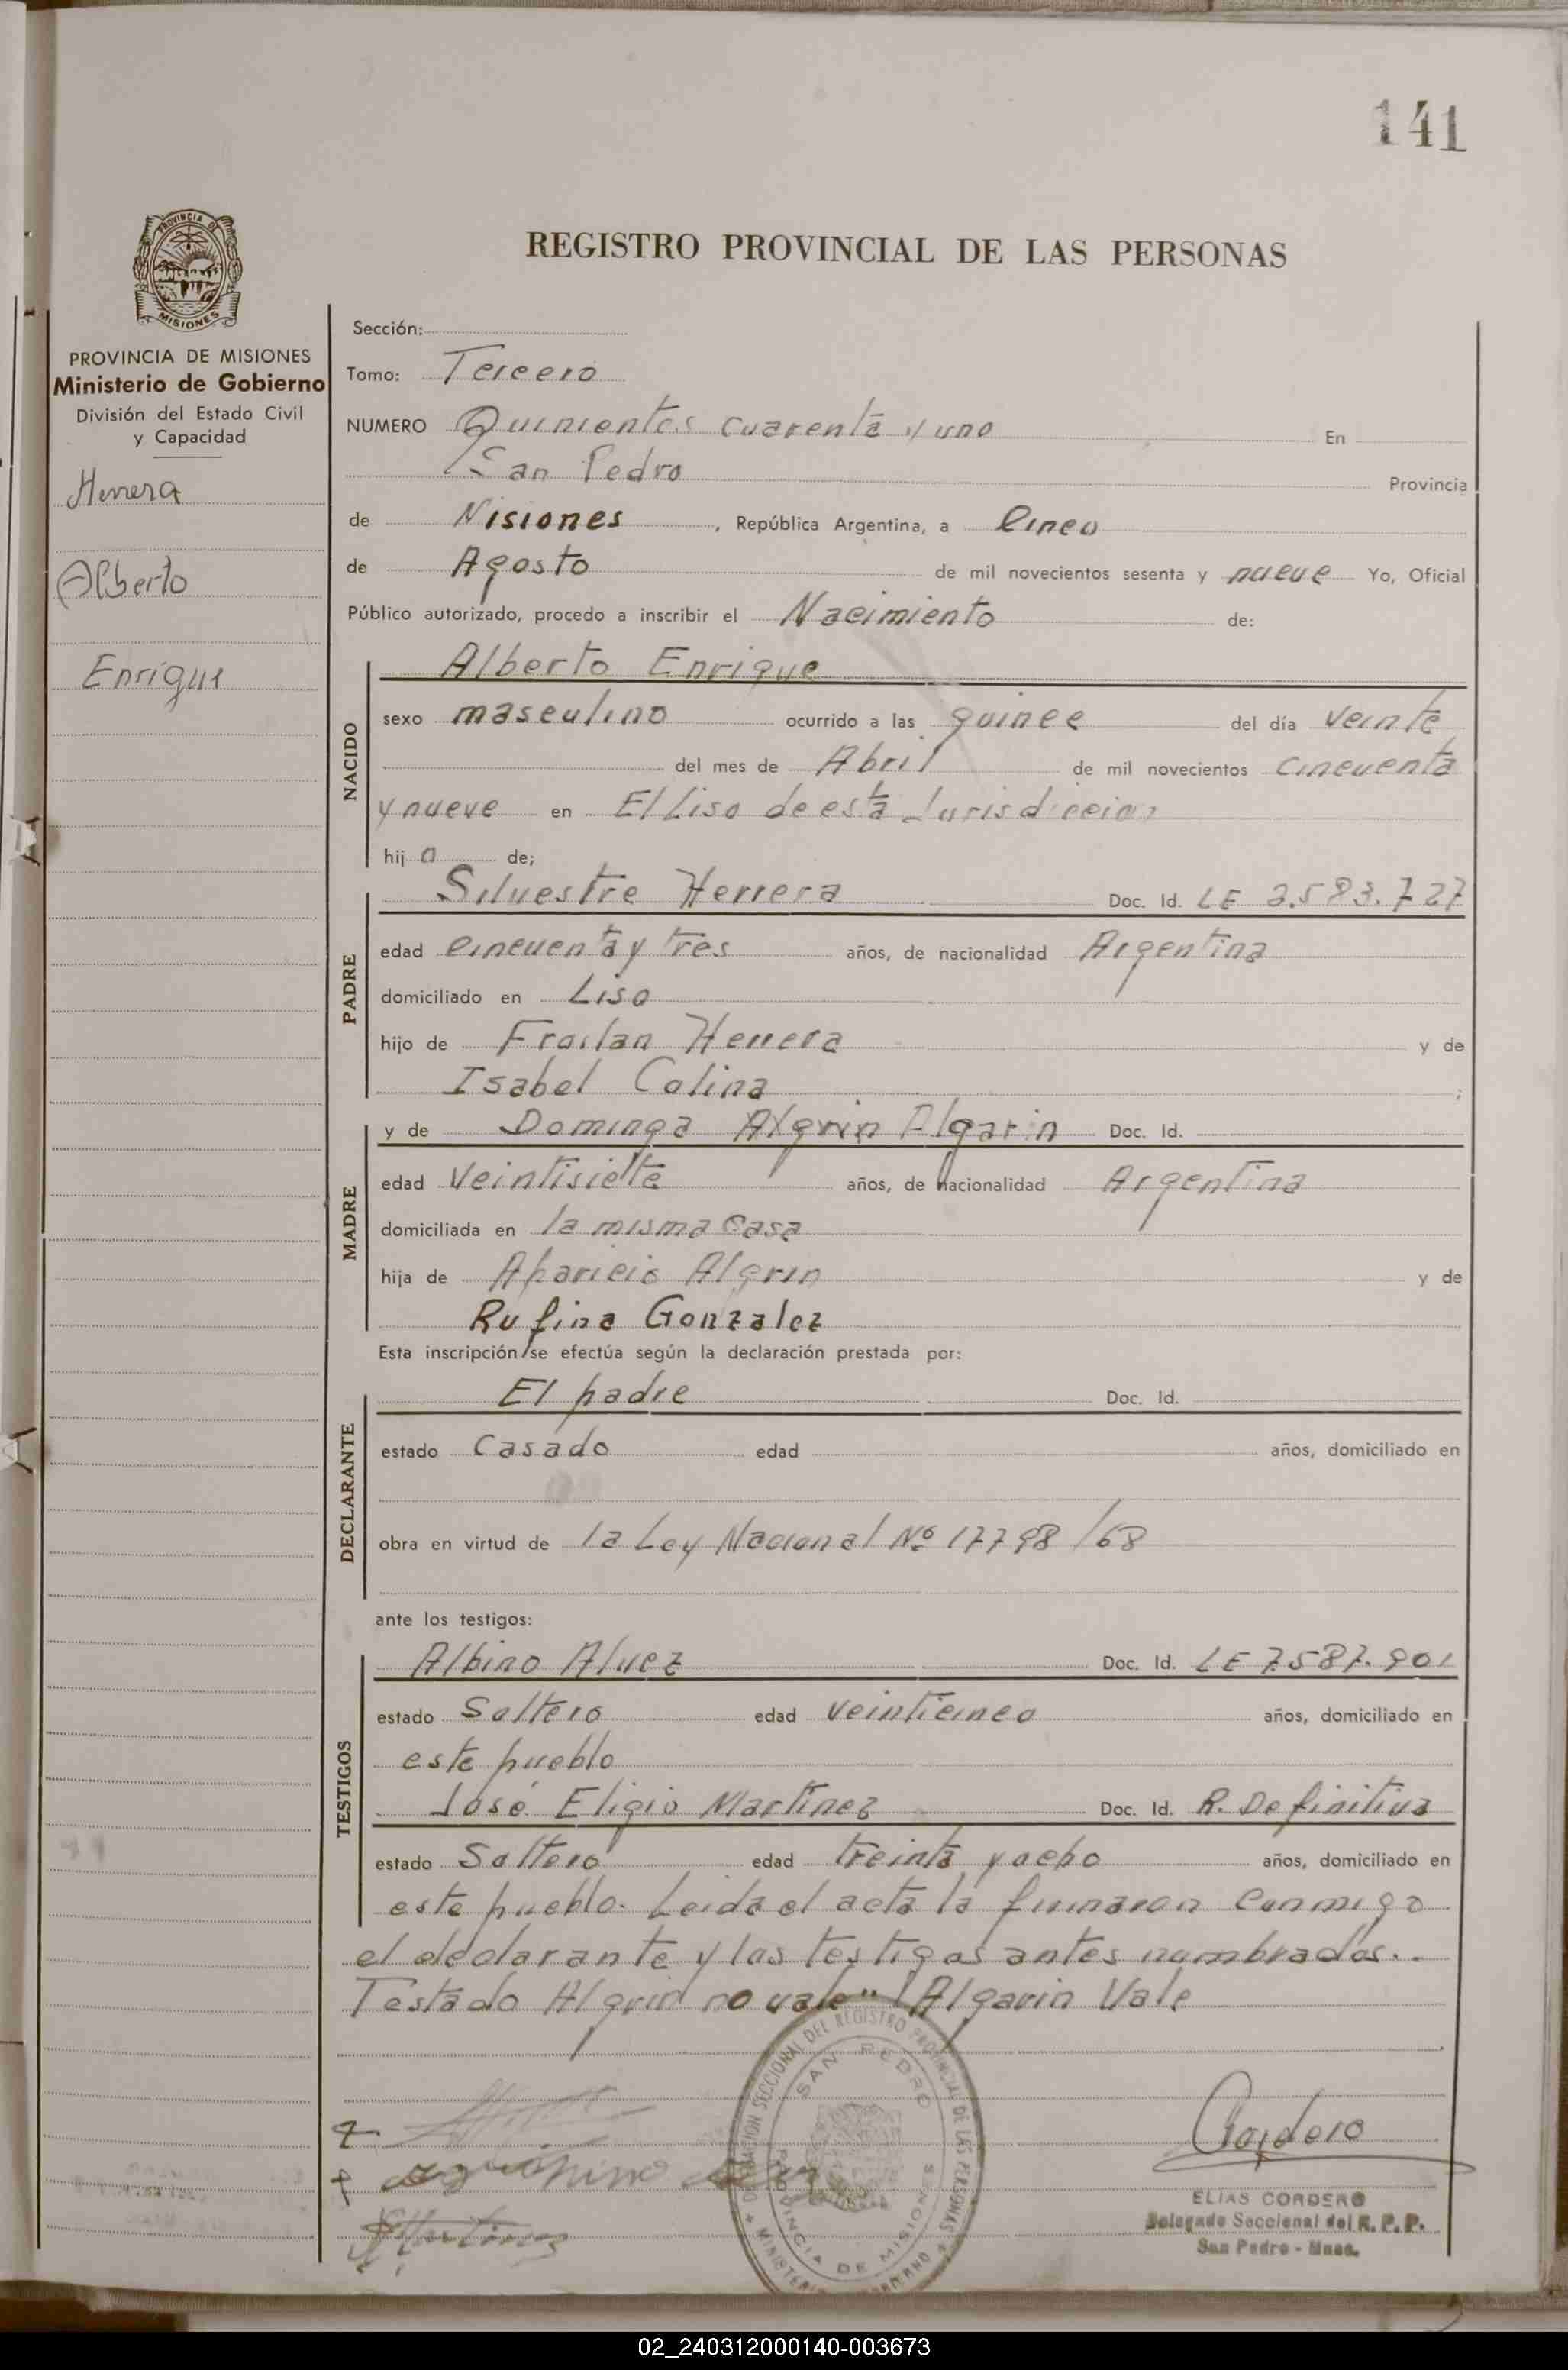 141
PROVINCIA DE
MISIONES
PROVINCIA DE MISIONES
Ministerio de Gobierno
División del Estado Civil
y Capacidad
Herrera
Alberto
Enrique
REGISTRO PROVINCIAL DE LAS PERSONAS
Sección:
Tomo: Tercero
NUMERO Quinientos cuarenta y uno En
San Pedro Provincia
de Misiones, República Argentina, a Cinco
de Agosto de mil novecientos sesenta y nueve Yo, Oficial
Público autorizado, procedo a inscribir el Nacimiento de:
NACIDO
Alberto Enrique
sexo masculino ocurrido a las quince del día veinte
del mes de Abril de mil novecientos cincuenta
y nueve en El Liso de esta Jurisdiccion
hijo de;
PADRE
Silvestre Herrera Doc. Id. LE 2.583.727
edad cincuenta y tres años, de nacionalidad Argentina
domiciliado en Liso
hijo de Froilan Herrera y de
Isabel Colina;
MADRE
y de Dominga Algrin Algarin Doc. Id.
edad Veintisiete años, de nacionalidad Argentina
domiciliada en la misma Casa
hija de Aparicio Algrin y de
Rufina Gonzalez
Esta inscripción se efectúa según la declaración prestada por:
DECLARANTE
El padre Doc. Id.
estado Casado edad años, domiciliado en
obra en virtud de la Ley Nacional Nº 17798/68
ante los testigos:
TESTIGOS
Albino Alvez Doc. Id. LE 7.587.901
estado Soltero edad veinticinco años, domiciliado en
este pueblo
José Eligio Martinez Doc. Id. R. Definitiva
estado Soltero edad treinta y ocho años, domiciliado en
este pueblo. Leida el acta la firmaron conmigo
el declarante y los testigos antes nombrados..
Testado Algrin no vale" Algarin Vale
DELEGACION SECCIONAL DEL REGISTRO PROVINCIAL DE LAS PERSONAS
SAN PEDRO
PROVINCIA DE MISIONES
Cordero
ELIAS CORDERO
Delegado Seccional del R. P. P.
San Pedro - Mnes.
02_240312000140-003673